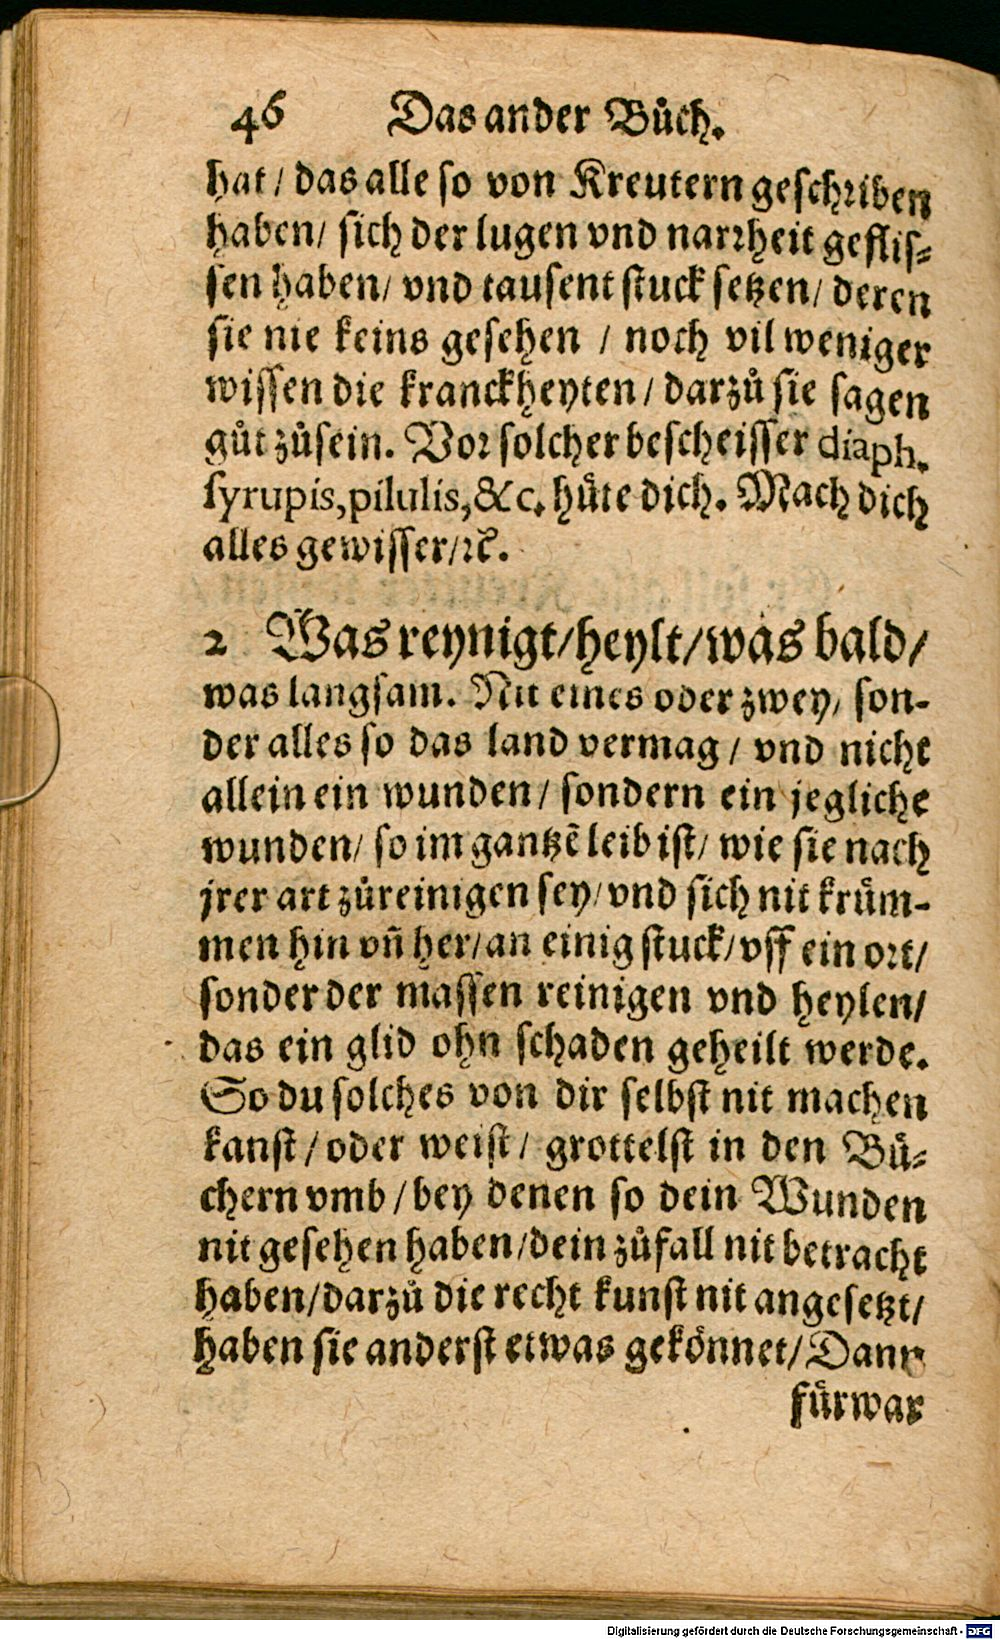 46 Das ander Bůch.
hat / das alle so von Kreutern geschriben
haben / sich der lugen vnd narrheit geflis⸗
sen haben / vnd tausent stuck setzen / deren
sie nie keins gesehen / noch vil weniger
wissen die kranckheyten / darzů sie sagen
gůt zůsein. Vor solcher bescheisser diaph.
syrupis, pilulis, &c. hůte dich. Mach dich
alles gewisser / ꝛc̄.
2 Was reynigt / heylt / was bald /
was langsam. Nit eines oder zwey / son-
der alles so das land vermag / vnd nicht
allein ein wunden / sondern ein jegliche
wunden / so im gantzē leib ist / wie sie nach
jrer art zůreinigen sey / vnd sich nit krům-
men hin vñ her / an einig stuck / vff ein ort /
sonder der massen reinigen vnd heylen /
das ein glid ohn schaden geheilt werde.
So du solches von dir selbst nit machen
kanst / oder weist / grottelst in den Bů⸗
chern vmb / bey denen so dein Wunden
nit gesehen haben / dein zůfall nit betracht
haben / darzů die recht kunst nit angesetzt /
haben sie anderst etwas gekönnet / Dann
fürwar
Digitalisierung gefördert durch die Deutsche Forschungsgemeinschaft - DFG